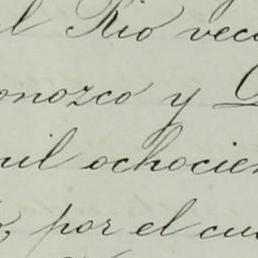 el Rio veci
onozco y
mil ochocien
por el cua